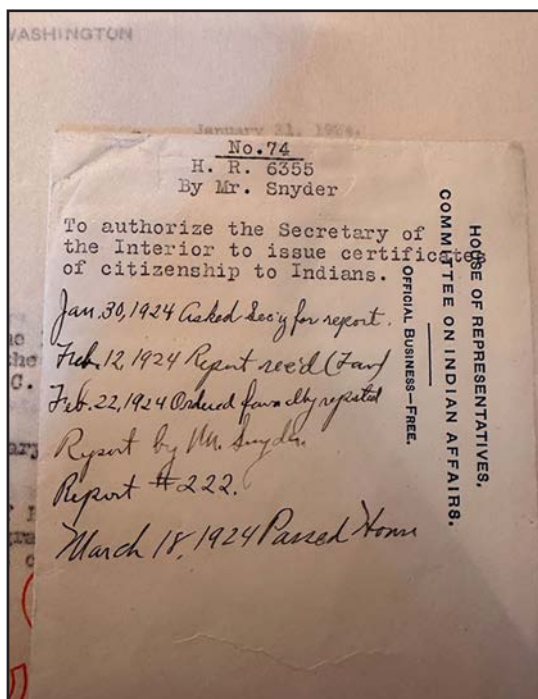 WASHINGTON
January 31, 1924.
No.74
H. R. 6355
By Mr. Snyder
To authorize the Secretary of
the Interior to issue certificates
of citizenship to Indians.
Jan. 30, 1924 Asked Sec'y for report.
Feb. 12, 1924 Report rec'd (Fav)
Feb. 22, 1924 Ordered favorably reported
Report by Mr. Snyder.
Report #222.
March 18, 1924 Passed House
HOUSE OF REPRESENTATIVES.
COMMITTEE ON INDIAN AFFAIRS.
OFFICIAL BUSINESS—FREE.